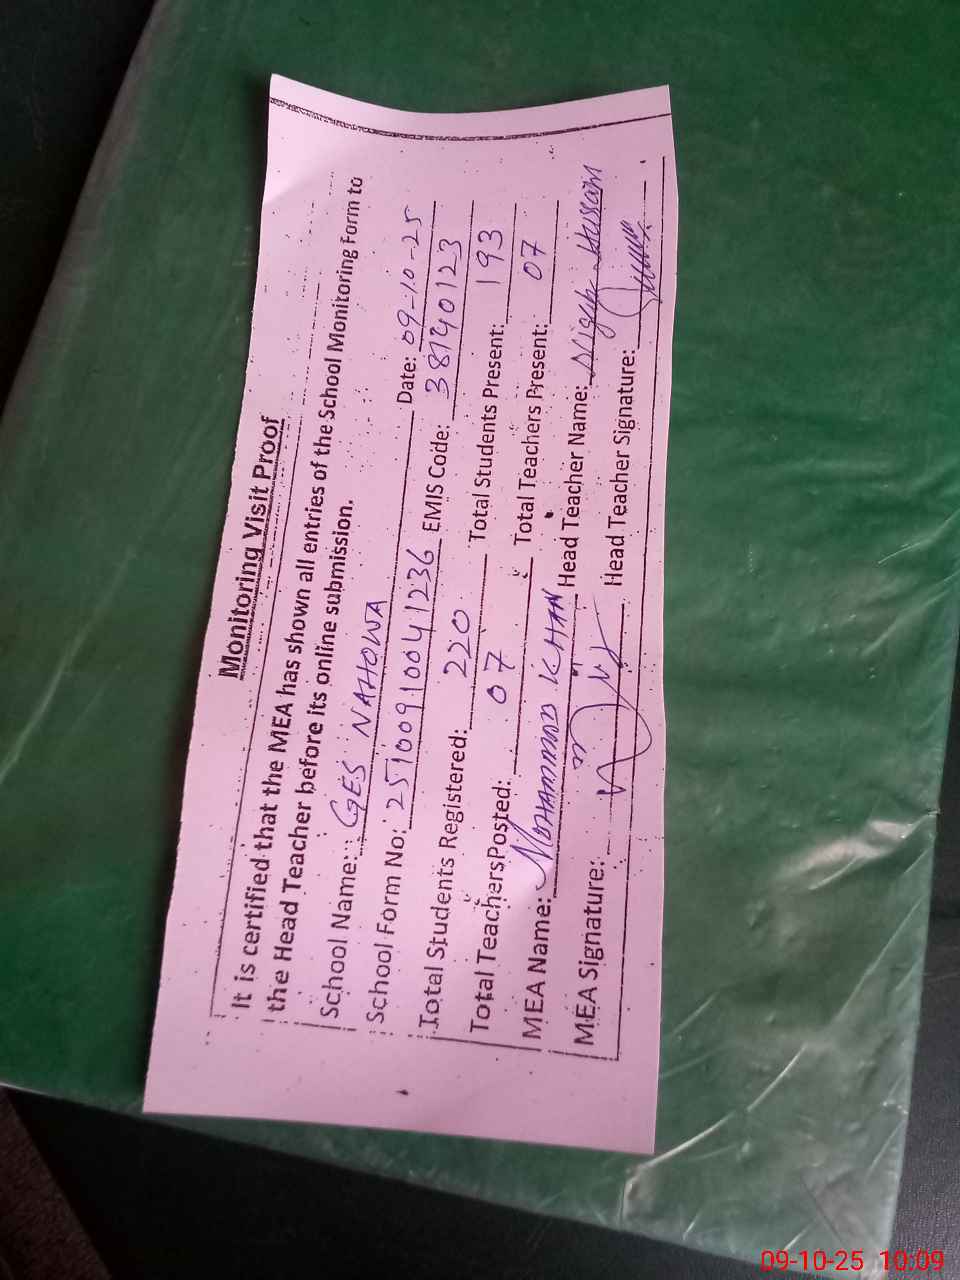 Monitoring Visit Proof
It is certified that the MEA has shown all entries of the School Monitoring Form to
the Head Teacher before its online submission.
School Name: GES NAHOWA Date: 09-10-25
School Form No: 25100910041236 EMIS Code: 38140123
Total Students Registered: 220 Total Students Present: 193
Total Teachers Posted: 07 Total Teachers Present: 07
MEA Name: MUHAMMAD KHAN Head Teacher Name: Hussain
MEA Signature: Head Teacher Signature:
09-10-25 10:09